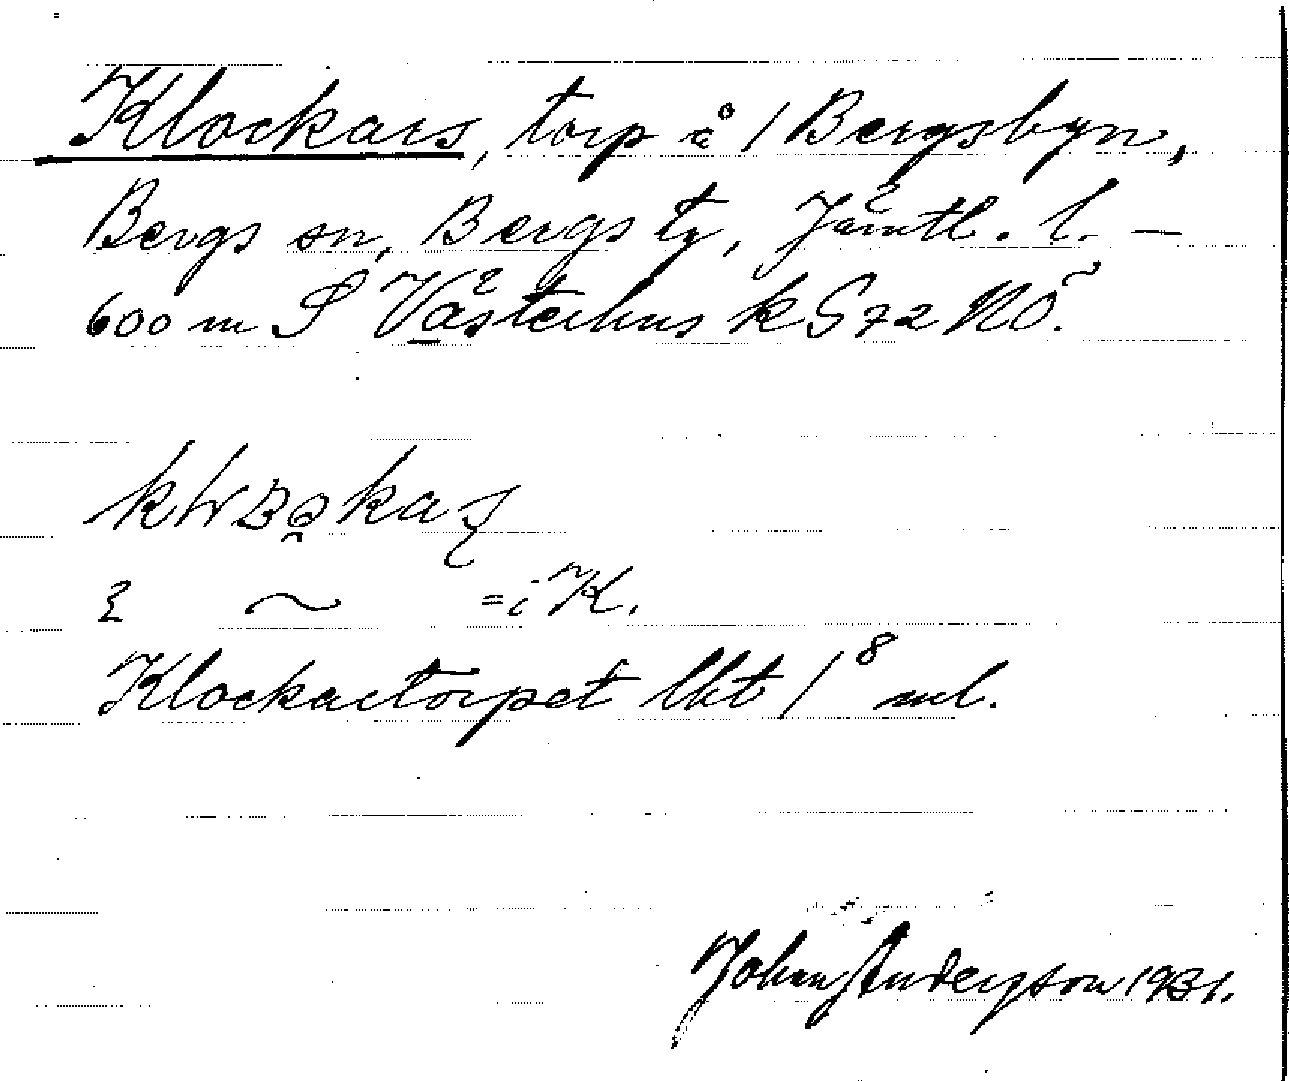 Klockars, torp å 1 Bergsbyn,
Bergs sn, Bergs tg, Jämtl. l. —
600 m S Västerhus k G 72 NO.
~ = i K.
Klockartorpet lbt 1⁸ ml.
Johan Anderson 1931.